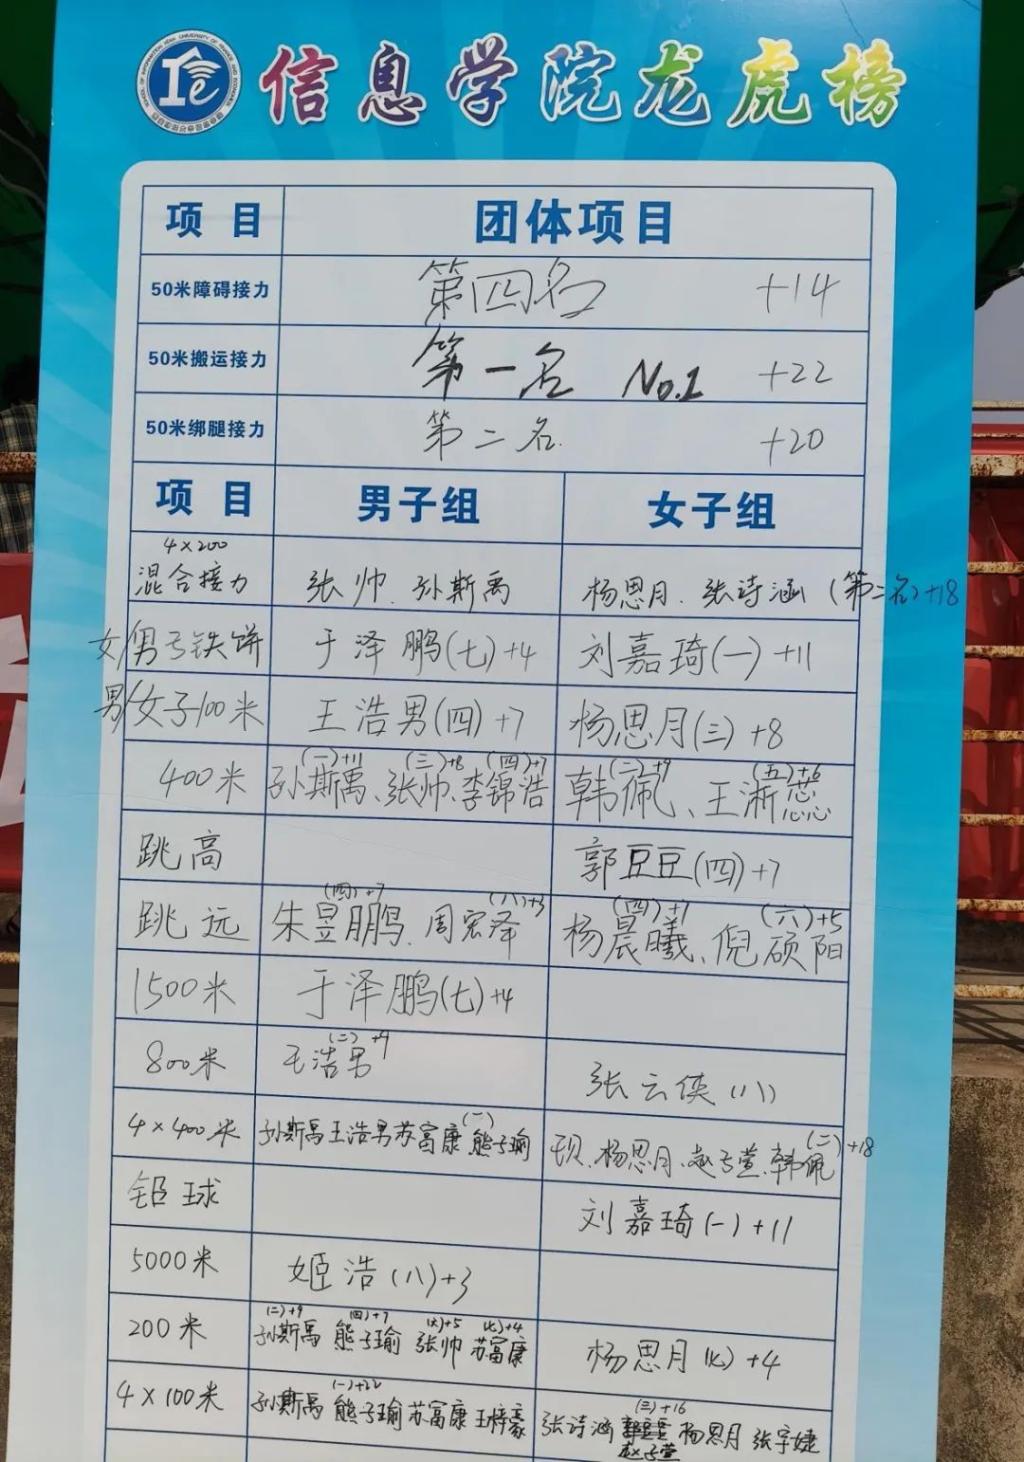 信息学院龙虎榜
项 目 团体项目
50米障碍接力 第四名 +14
50米搬运接力 第一名 No.1 +22
50米绑腿接力 第二名. +20
项 目 男子组 女子组
4×200
混合接力 张帅、孙斯禹 杨思月、张诗涵 (第二名)+18
女/男子铁饼 于泽鹏(七)+4 刘嘉琦(一)+11
男/女子100米 王浩男(四)+7 杨思月(三)+8
(一)+11 (三)+8 (四)+7 (二)+9 (五)+6
400米 孙斯禹、张帅、李锦浩 韩佩、王渐
跳高 郭豆豆(四)+7
(四)+7 (八)+3 (四)+7 (六)+5
跳远 朱昱鹏、周宏泽 杨晨曦、倪硕阳
1500米 于泽鹏(七)+4
(二)+9
800米 王浩男 张云侠(八)
(二) (二)+18
4×400米 孙斯禹王浩男苏富康熊子瑜 杨思月、赵子萱、韩佩
铅球 刘嘉琦(一)+11
5000米 姬浩(八)+3
(二)+9 (四)+7 (六)+5 (七)+4
200米 孙斯禹 熊子瑜 张帅 苏富康 杨思月(七)+4
(一)+22 (三)+16
4×100米 孙斯禹 熊子瑜 苏富康 王梓豪 张诗涵 郭豆豆 杨思月 张宇婕
赵子萱